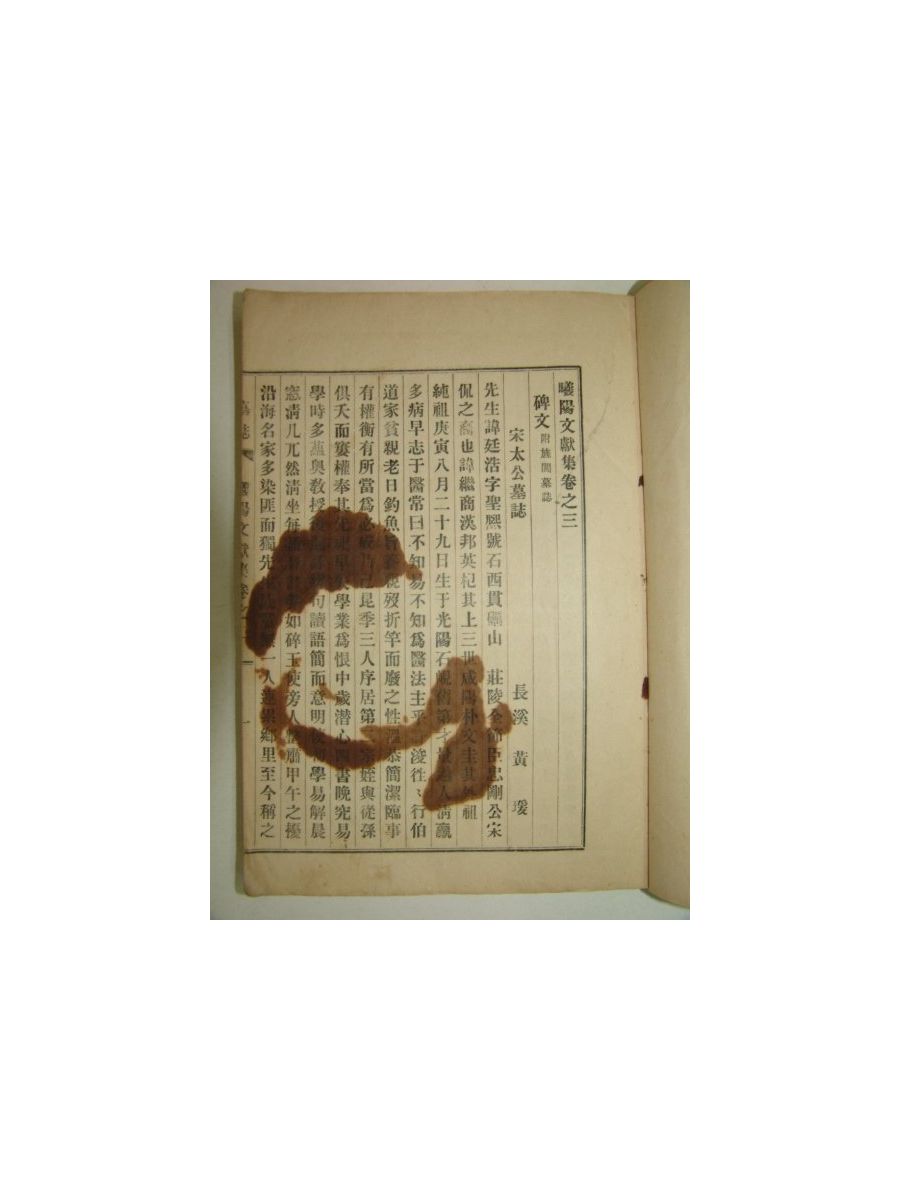 曦陽文獻集卷之三
碑文 附旌閭墓誌
宋太公墓誌 長溪 黃 瑗
先生諱廷浩字聖熙號石西貫礪山 莊陵 臣忠剛公宋
侃之裔也諱繼商漢邦英杞其上三世咸陽朴文圭其外祖
純祖庚寅八月二十九日生于光陽石 舊第才 人淸羸
多病早志于醫常曰不知易不知爲醫法主乎 浚徃〻行伯
道家貧親老日釣魚旨 歿折竿而廢之性溫恭簡潔臨事
有權衡有所當爲必 昆季三人序居第 姪與從孫
俱夭而 權奉其 學業爲恨中歲潛心四書晚究易
學時多蘊奧敎授後 句讀語簡而意明 學易解晨
窓淸几兀然淸坐每 如碎玉使旁人 肅甲午之擾
沿海名家多染匪而獨先 一人 鄕里至今稱之
墓誌 曦陽文獻集卷之三 一